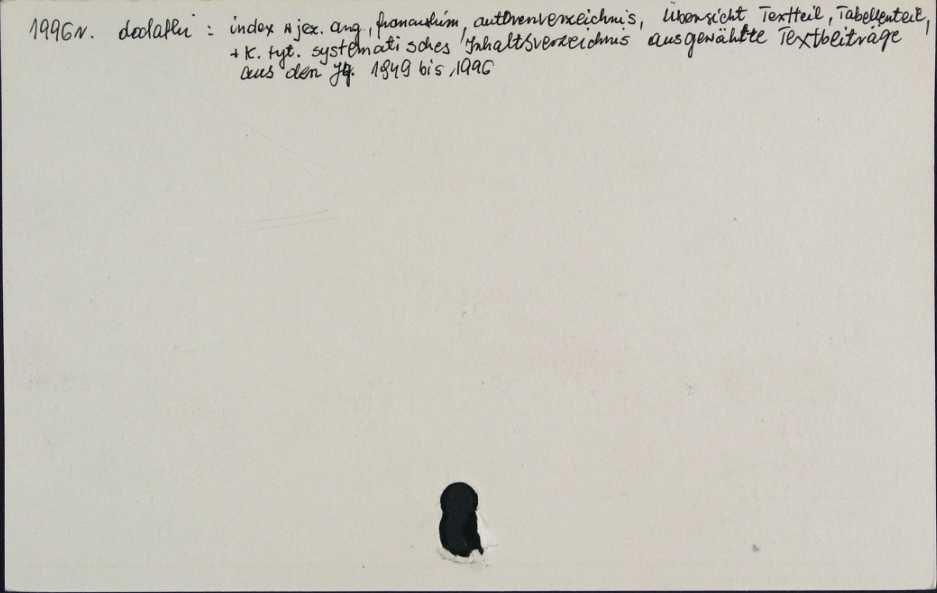 1996r. dodatki : index w jęz. ang, francuskim, authrenverzeichnis, Übersicht Textteil, Tabellenteil,
+ k. tyt. systematisches Inhaltsverzeichnis ausgewählte Textbeiträge
aus den Jg. 1949 bis 1996